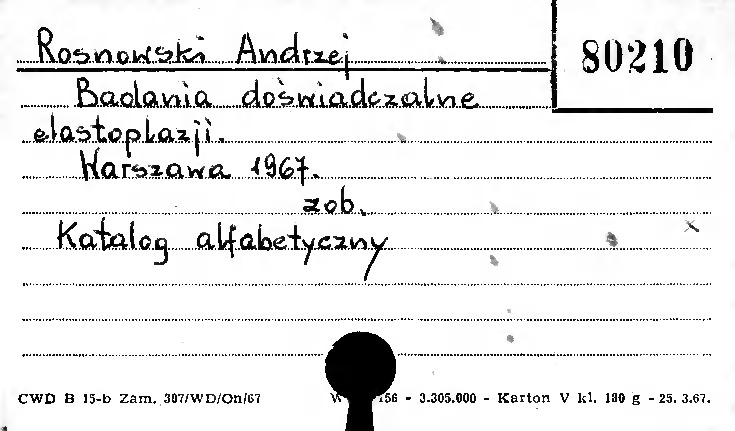 Rosnowski Andrzej
80210
Badania doświadczalne
elastoplazji.
Warszawa 1967.
zob.
Katalog alfabetyczny
CWD B 15-b Zam. 307/WD/On/67
156 - 3.305.000 - Karton V kl. 180 g - 25. 3.67.